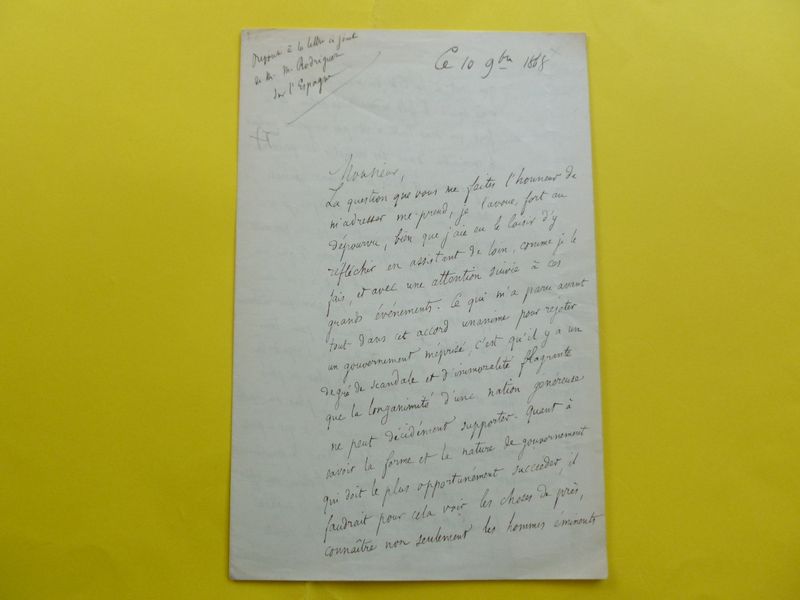 à la lettre ci joint
de M. M. Rodrigues
sur l'Espagne
Ce 10 9bre 1868
Monsieur,
La question que vous me faites l'honneur de
m'adresser me prend, je l'avoue, fort au
dépourvu, bien que j'aie eu le loisir d'y
réfléchir en assistant de loin, comme je le
fais, et avec une attention suivie à ces
grands événements. Ce qui m'a paru avant
tout dans cet accord unanime pour rejeter
un gouvernement méprisé, c'est qu'il y a un
degré de scandale et d'immoralité flagrante
que la longanimité d'une nation généreuse
ne peut décidément supporter. Quant à
savoir la forme et la nature de gouvernement
qui doit le plus opportunément succéder, il
faudrait pour cela voir les choses de près,
connaître non seulement les hommes éminents